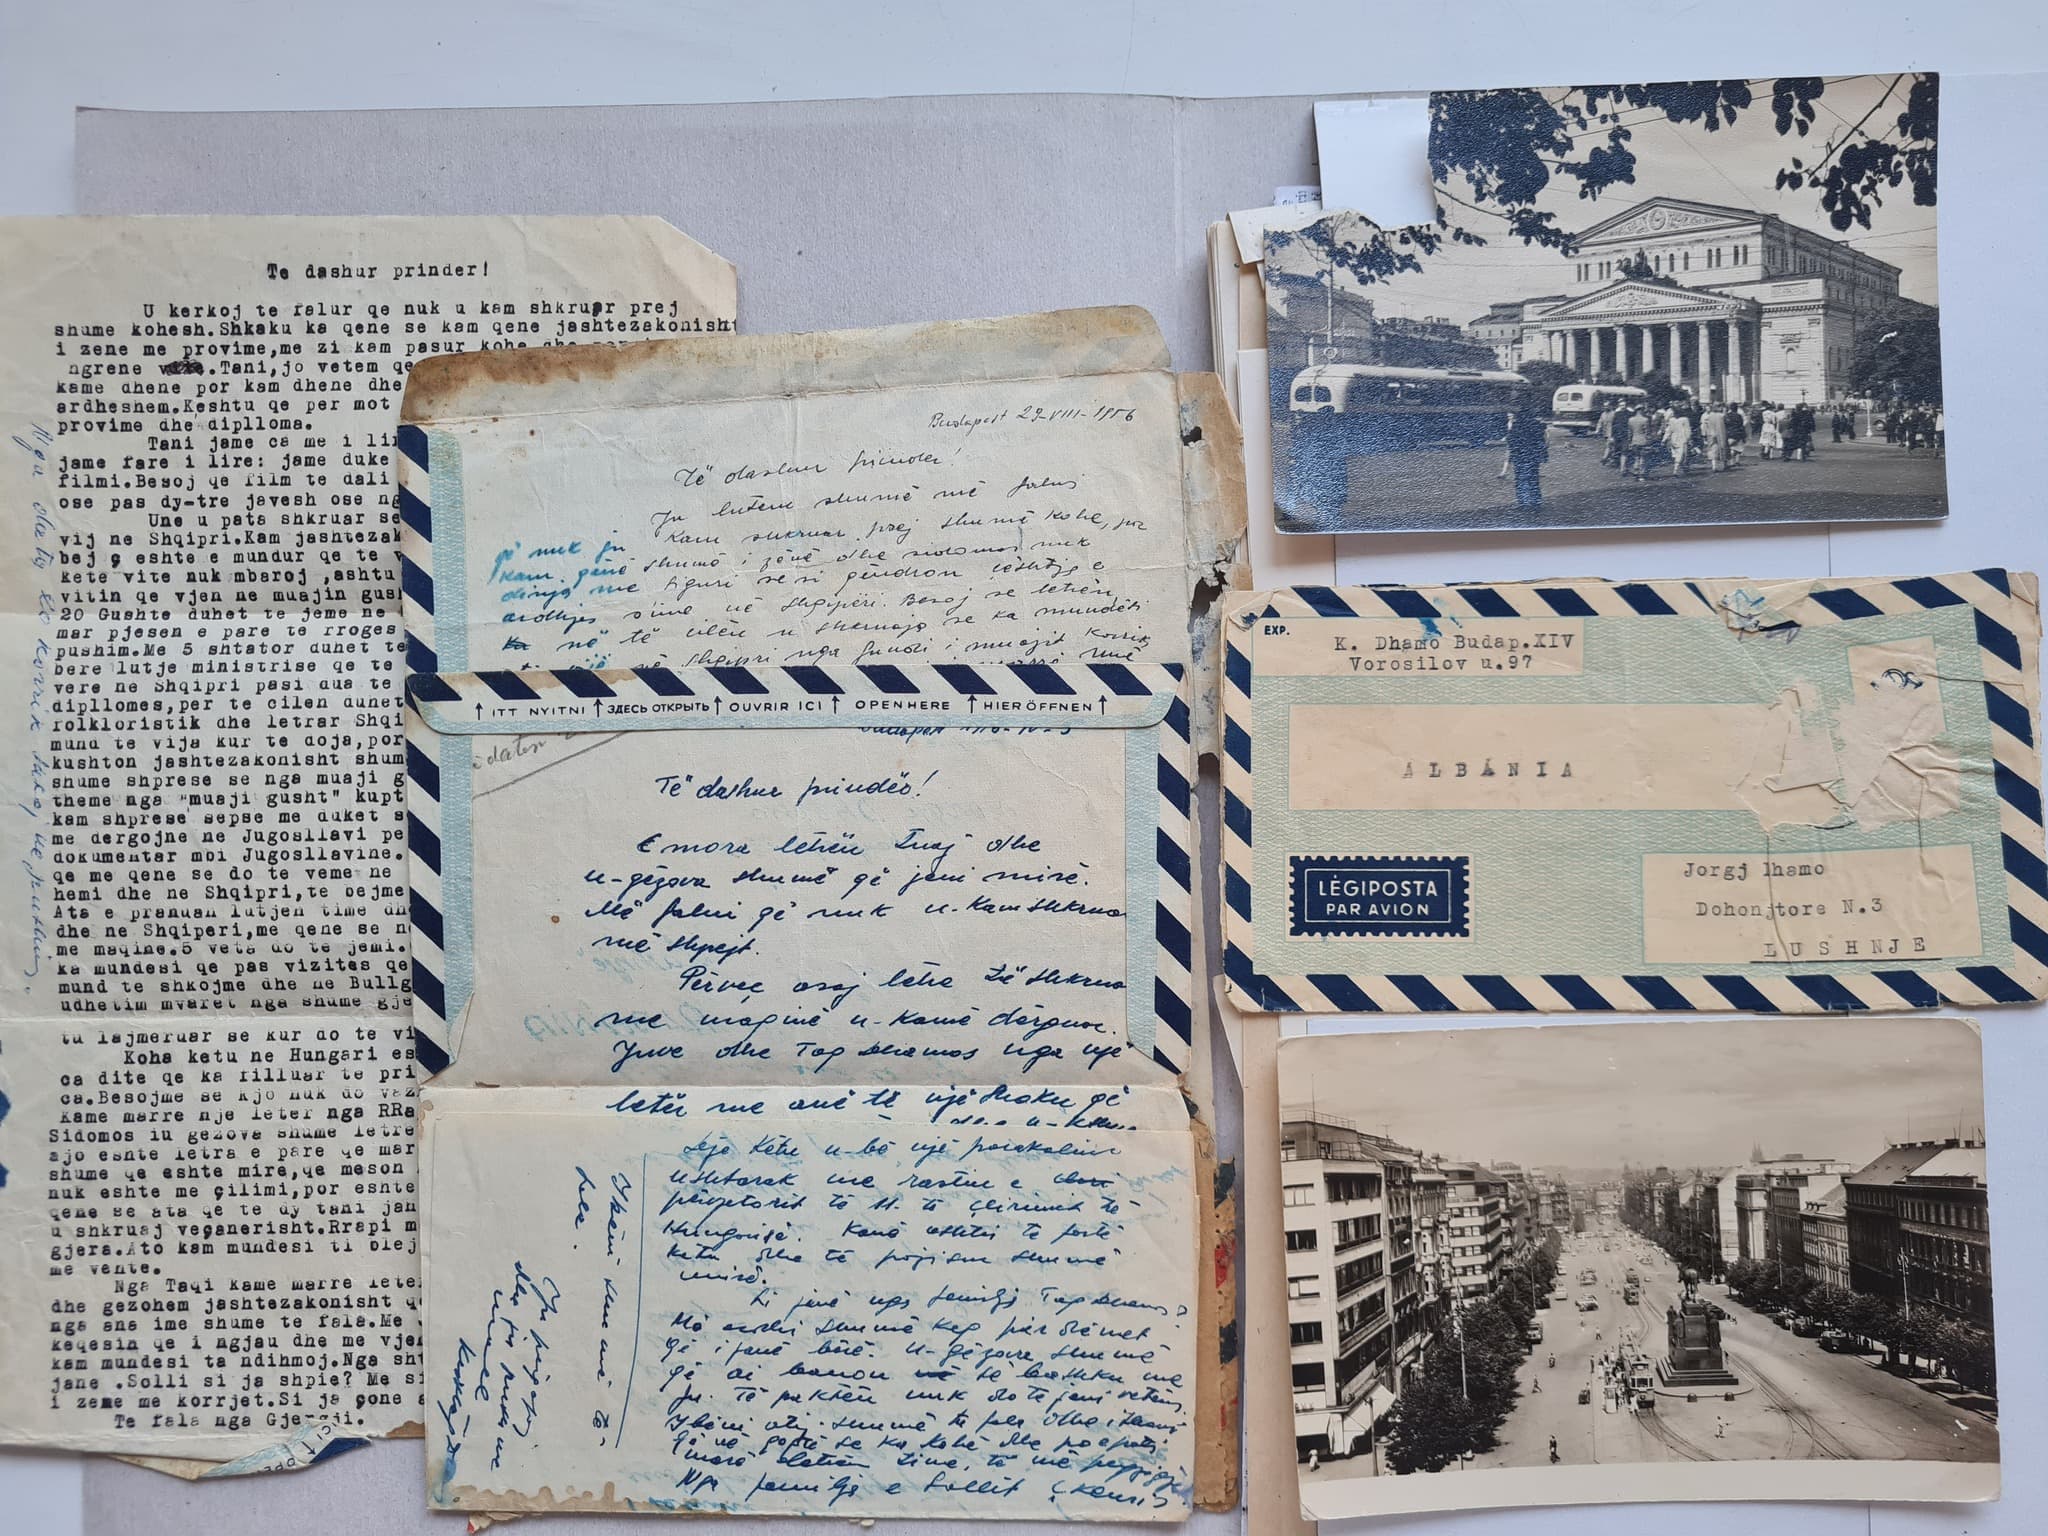 Te dashur prinder!
U kerkoj te falur qe nuk u kam shkruar prej
shume kohesh.Shkaku ka qene se kam qene jashtezakonisht
i zene me provime,me zi kam pasur kohe dhe
ngrene .Tani,jo vetem qe
kame dhene por kam dhene dhe
ardheshem.Keshtu qe per mot
provime dhe diplloma.
Tani jame ca me i lir
jame fare i lire: jame duke
filmi.Besoj qe film te dali
ose pas dy-tre javesh ose ng
Une u pata shkruar se
vij ne Shqipri.Kam jashtezak
bej ç eshte e mundur qe te v
kete vite nuk mbaroj ,ashtu
vitin qe vjen ne muajin gush
20 Gushte duhet te jeme ne
mar pjesen e pare te rroges
pushim.Me 5 shtator duhet te
bere lutje ministrise qe te
vere ne Shqipri pasi dua te
dipllomes,per te cilen duhet
folkloristik dhe letrar Shqi
mund te vija kur te doja,por
kushton jashtezakonisht shum
shume shprese se nga muaji g
theme nga "muaji gusht" kupt
kam shprese sepse me duket s
me dergojne ne Jugosllavi pe
dokumentar moi Jugosllavine.
qe me qene se do te veme ne
hemi dhe ne Shqipri,te bejme
Ata e pranuan lutjen time dh
dhe ne Shqiperi,me qene se n
me maqine.5 veta do te jemi.
ka mundesi qe pas vizites qe
mund te shkojme dhe ne Bullg
udhetim mvaret nga shume gje
tu lajmeruar se kur do te vi
Koha ketu ne Hungari es
ca dite qe ka filluar te pri
ca.Besojme se kjo nuk do vaz
Kame marre nje leter nga RRa
Sidomos iu gezova shume letre
ajo eshte letra e pare qe mar
shume qe eshte mire,qe meson
nuk eshte me çilimi,por eshte
qene se ata qe te dy tani jan
u shkruaj veçanerisht.Rrapi m
gjera.Ato kam mundesi ti blej
me vehte.
Nga Taqi kame marre lete
dhe gezohem jashtezakonisht q
nga ana ime shume te fala.Me
keqesin qe i ngjau dhe me vjen
kam mundesi ta ndihmoj.Nga sht
jane .Solli si ja shpie? Me si
i zeme me korrjet.Si ja çone a
Te fala nga Gjergji.
Budapest 29-VIII-1956
Të dashur prinder!
Ju lutem shumë më falni
që nuk ju kam shkruar prej shumë kohe, por
kam qënë shumë i zënë dhe sidomos nuk
dinja me siguri se si qëndron çështja e
ardhjes sime në Shqipëri. Besoj se letrën
në të cilën u shkruaja se ka mundësi
në Shqipri nga fundi i muajit Korrik
↑ ITT NYITNI ↑ ЗДЕСЬ ОТКРЫТЬ ↑ OUVRIR ICI ↑ OPEN HERE ↑ HIER ÖFFNEN ↑
Budapest
Të dashur prindës!
E mora letrën tuaj dhe
u-gëzova shumë që jeni mirë.
Më falni që nuk u-kam shkrua
më shpejt.
Përveç asaj letre të shkrua
me maqinë u-kamë dërguar
Juve dhe Taq Dhamos nga një
letër me anë të një shoku që
Këtu u-bë një parakalim
ushtarak me rastin e
përvjetorit të 11. të çlirimit të
Hungarisë. Kanë ushtri të fortë
këtu dhe të pajisur shumë
mirë.
Si janë nga familja Taq Dhamos?
Më ardhi shumë keq për dëmet
që i janë bërë. U-gëzova shumë
që ai banon së bashku me
ju. Të paktën nuk do të jeni vetëm.
I bëni atij shumë të fala dhe i thoni
që në qoftë se ka kohë dhe
marë letrën time, të më përgjigjet
Nga familja e Sollit
EXP.
K. Dhamo Budap.XIV
Vorosilov u.97
ALBÁNIA
LÉGIPOSTA
PAR AVION
Jorgj Dhamo
Dohonjtore N.3
LUSHNJE